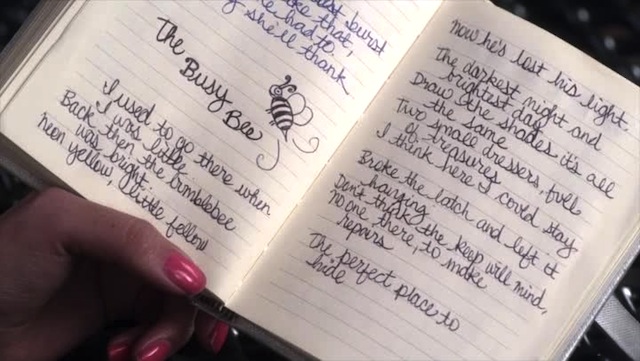 burst
like that,
he had to.
she'll thank
The
Busy
Bee
I used to go there when
I was little
Back then the bumblebee
was bright.
Neon yellow, little fellow
now he's lost his light.
The darkest night and
brightest day
Draw the shades it's all
the same
Two small dressers, full
of treasures
I think here I could stay
Broke the latch and left it
hanging
Don't think the keep will mind,
no one there, to make
repairs
The perfect place to
hide